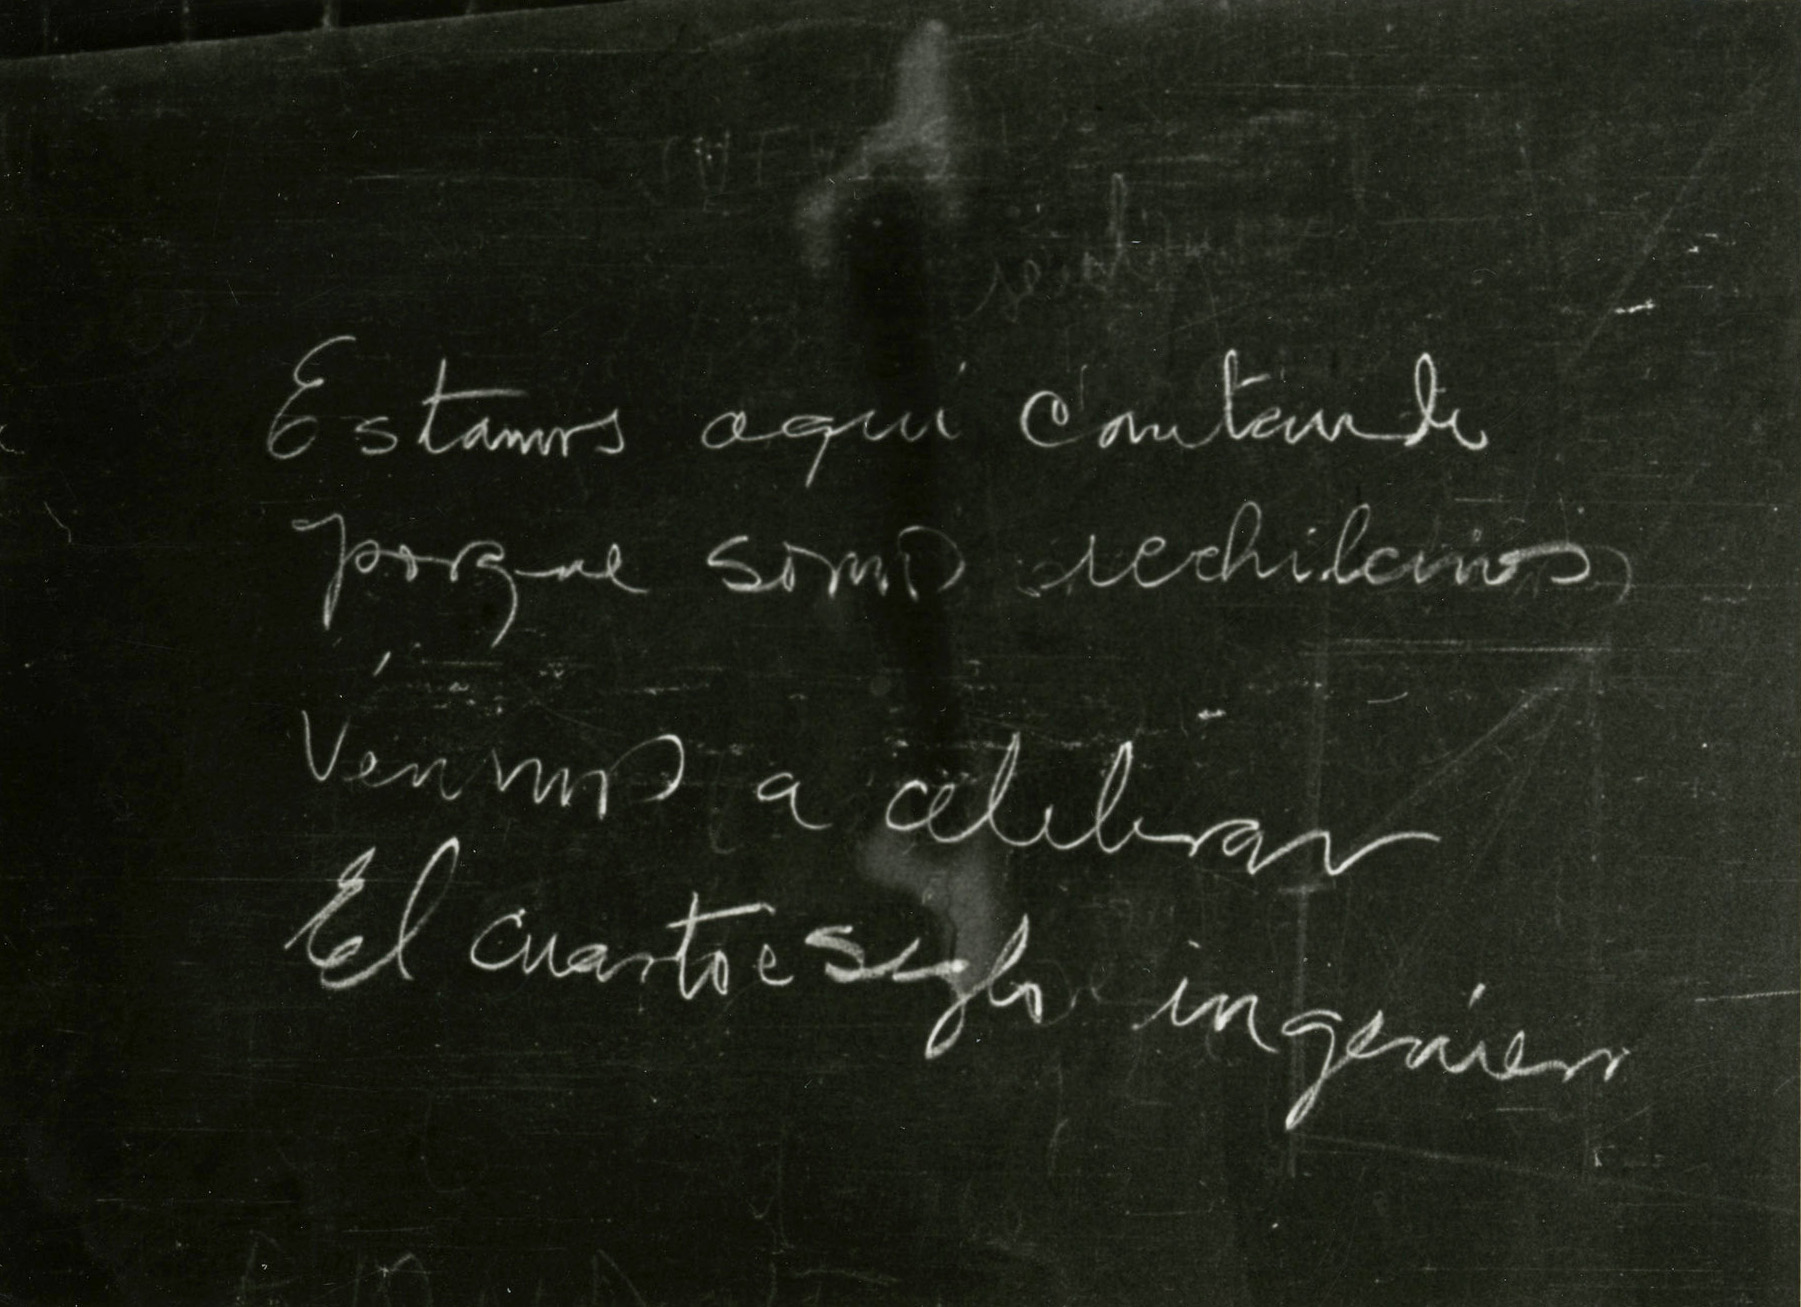 Estamos aquí cantando
porque somos rechilenos
Venimos a celebrar
El cuarto e siglo ingeniero